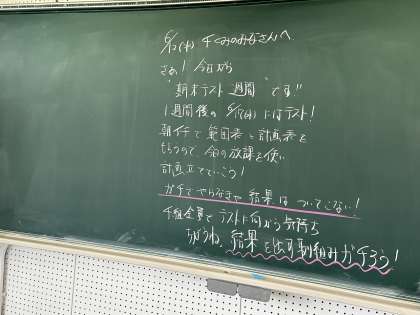 6/12(木) 千くみのみなさんへ
さぁ! 今日から
"期末テスト週間" です!!
1週間後の 6/19(木) にはテスト!
朝イチで 範囲表と計画表を
もらうので、今日の放課を使い
計画立てていこう!
ガチでやらなきゃ 結果は ついてこない!
千組全員で テストに向かう気持ち
結果を出す